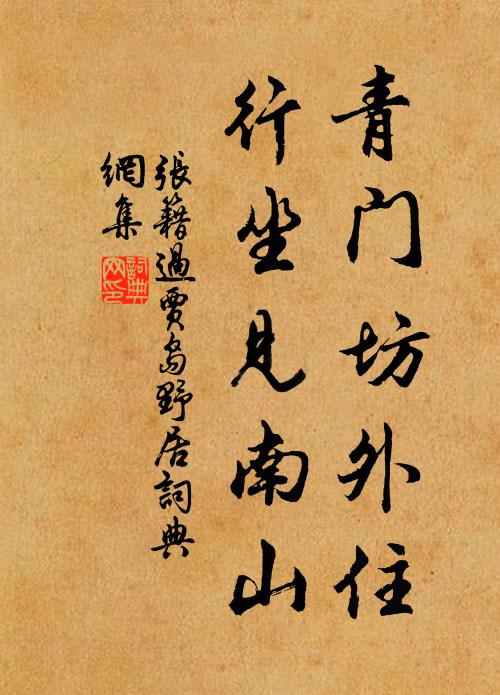 青门坊外住
行坐见南山
張籍過賈島野居詞典
網集
詞典
网印